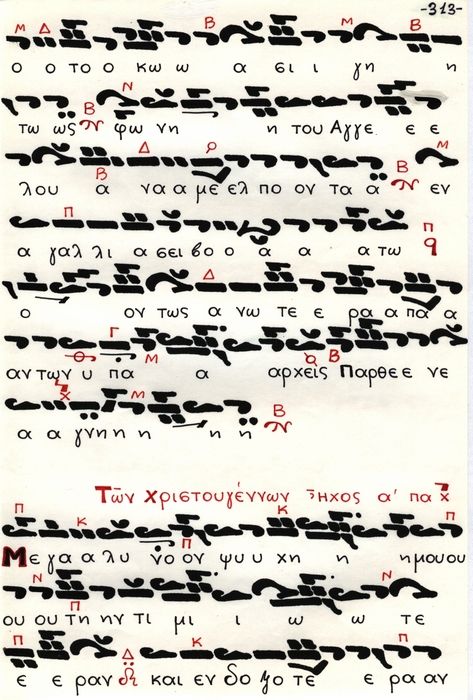 -313-
ο ο το ο κω ω α σι ι γη η
τω ως φω νη η του Αγγε ε ε
λου α να α με ελ πο ον τα α εν
α γαλ λι α σει βο ο α α α τω
ο ον τως α νω τε ε ρα α πα α
αν των υ πα α αρχεις Παρθε ε νε
α α γνη η η η η η
Των Χριστουγέννων Ἦχος α' πα
Με γα α λυ νο ον ψυ υ χη η η μου ου
ου ου τη ην τι μι ι ω ω τε
ε ε ραν και εν δο ξο τε ε ρα αν